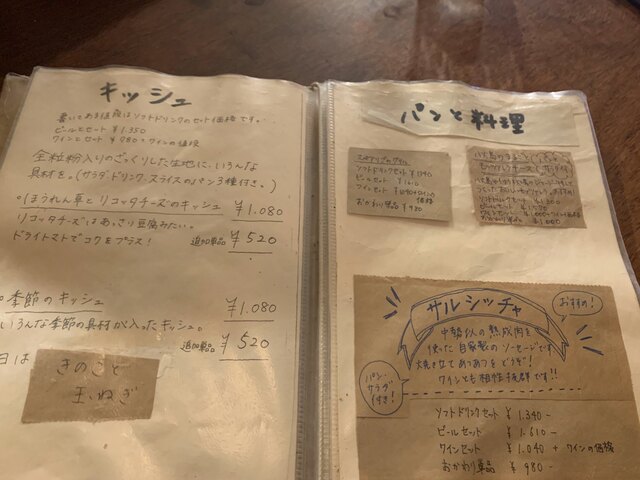 キッシュ
書いてある値段はソフトドリンクのセット価格です。
ビールとセット ¥1.350
ワインとセット ¥980+ワインの値段
全粒粉入りのざっくりした生地に、いろんな
具材を。(サラダ、ドリンク、スライスのパン3種付き。)
ほうれん草とリコッタチーズのキッシュ ¥1.080
リコッタチーズはあっさり豆腐みたい。
ドライトマトでコクをプラス! 追加単品 ¥520
季節のキッシュ ¥1.080
いろんな季節の具材が入ったキッシュ。
追加単品 ¥520
日は
きのこと
玉ねぎ
パンと料理
ソフトドリンクセット ¥1340
ビールセット ¥1610
ワインセット
価格
おかわり単品 ¥980
ソフトドリンクセット ¥1300
サルシッチャ
おすすめ!
中勢以の熟成肉を
使った自家製のソーセージです
焼き立てあつあつをどうぞ!
ワインとも相性抜群です!!
パン、
サラダ
付き!
ソフトドリンクセット ¥1.340-
ビールセット ¥1.610-
ワインセット ¥1.040 + ワインの価格
おかわり単品 ¥980-